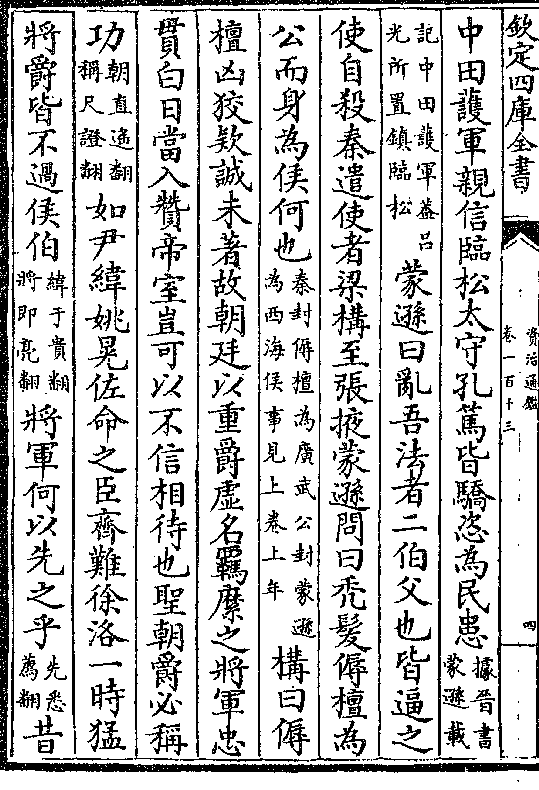 欽定四庫全書
資治通鑑
卷一百十三
四
中田護軍親信臨松太守孔篤皆驕恣為民患據晉書蒙遜載
記中田護軍葢吕光所置鎮臨松蒙遜曰亂吾法者二伯父也皆逼之
使自殺秦遣使者梁構至張掖蒙遜問曰禿髮傉檀為
公而身為侯何也秦封傉檀為廣武公封蒙遜為西海侯事見上卷上年構曰傉
檀凶狡欵誠未著故朝廷以重爵虛名羈縻之將軍忠
貫白日當入贊帝室豈可以不信相待也聖朝爵必稱
功朝直遥翻稱尺證翻如尹緯姚晃佐命之臣齊難徐洛一時猛
將爵皆不過侯伯緯于貴翻將即亮翻將軍何以先之乎先悉薦翻昔